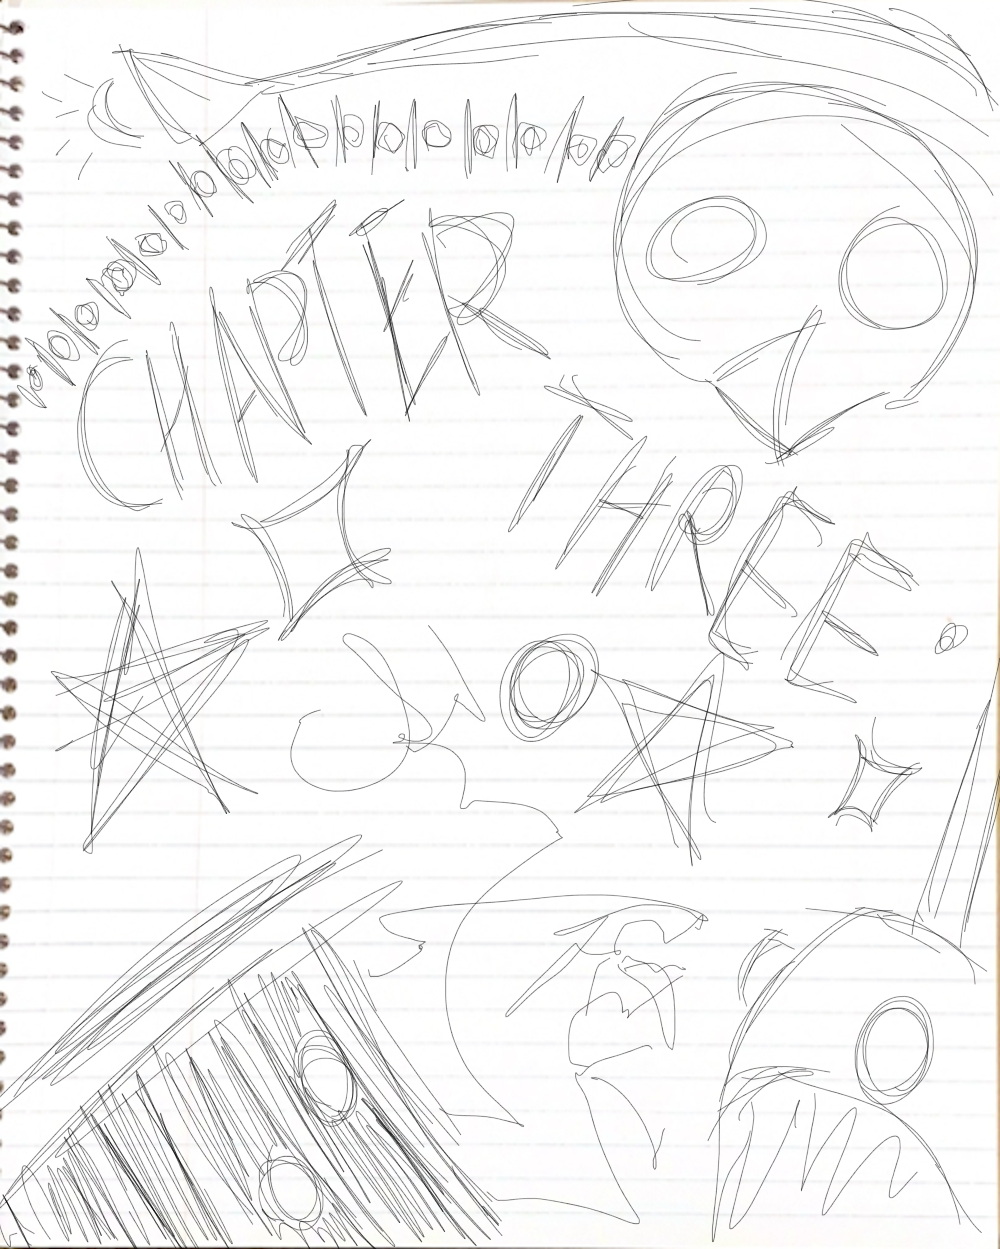 CHAPTER
THREE.